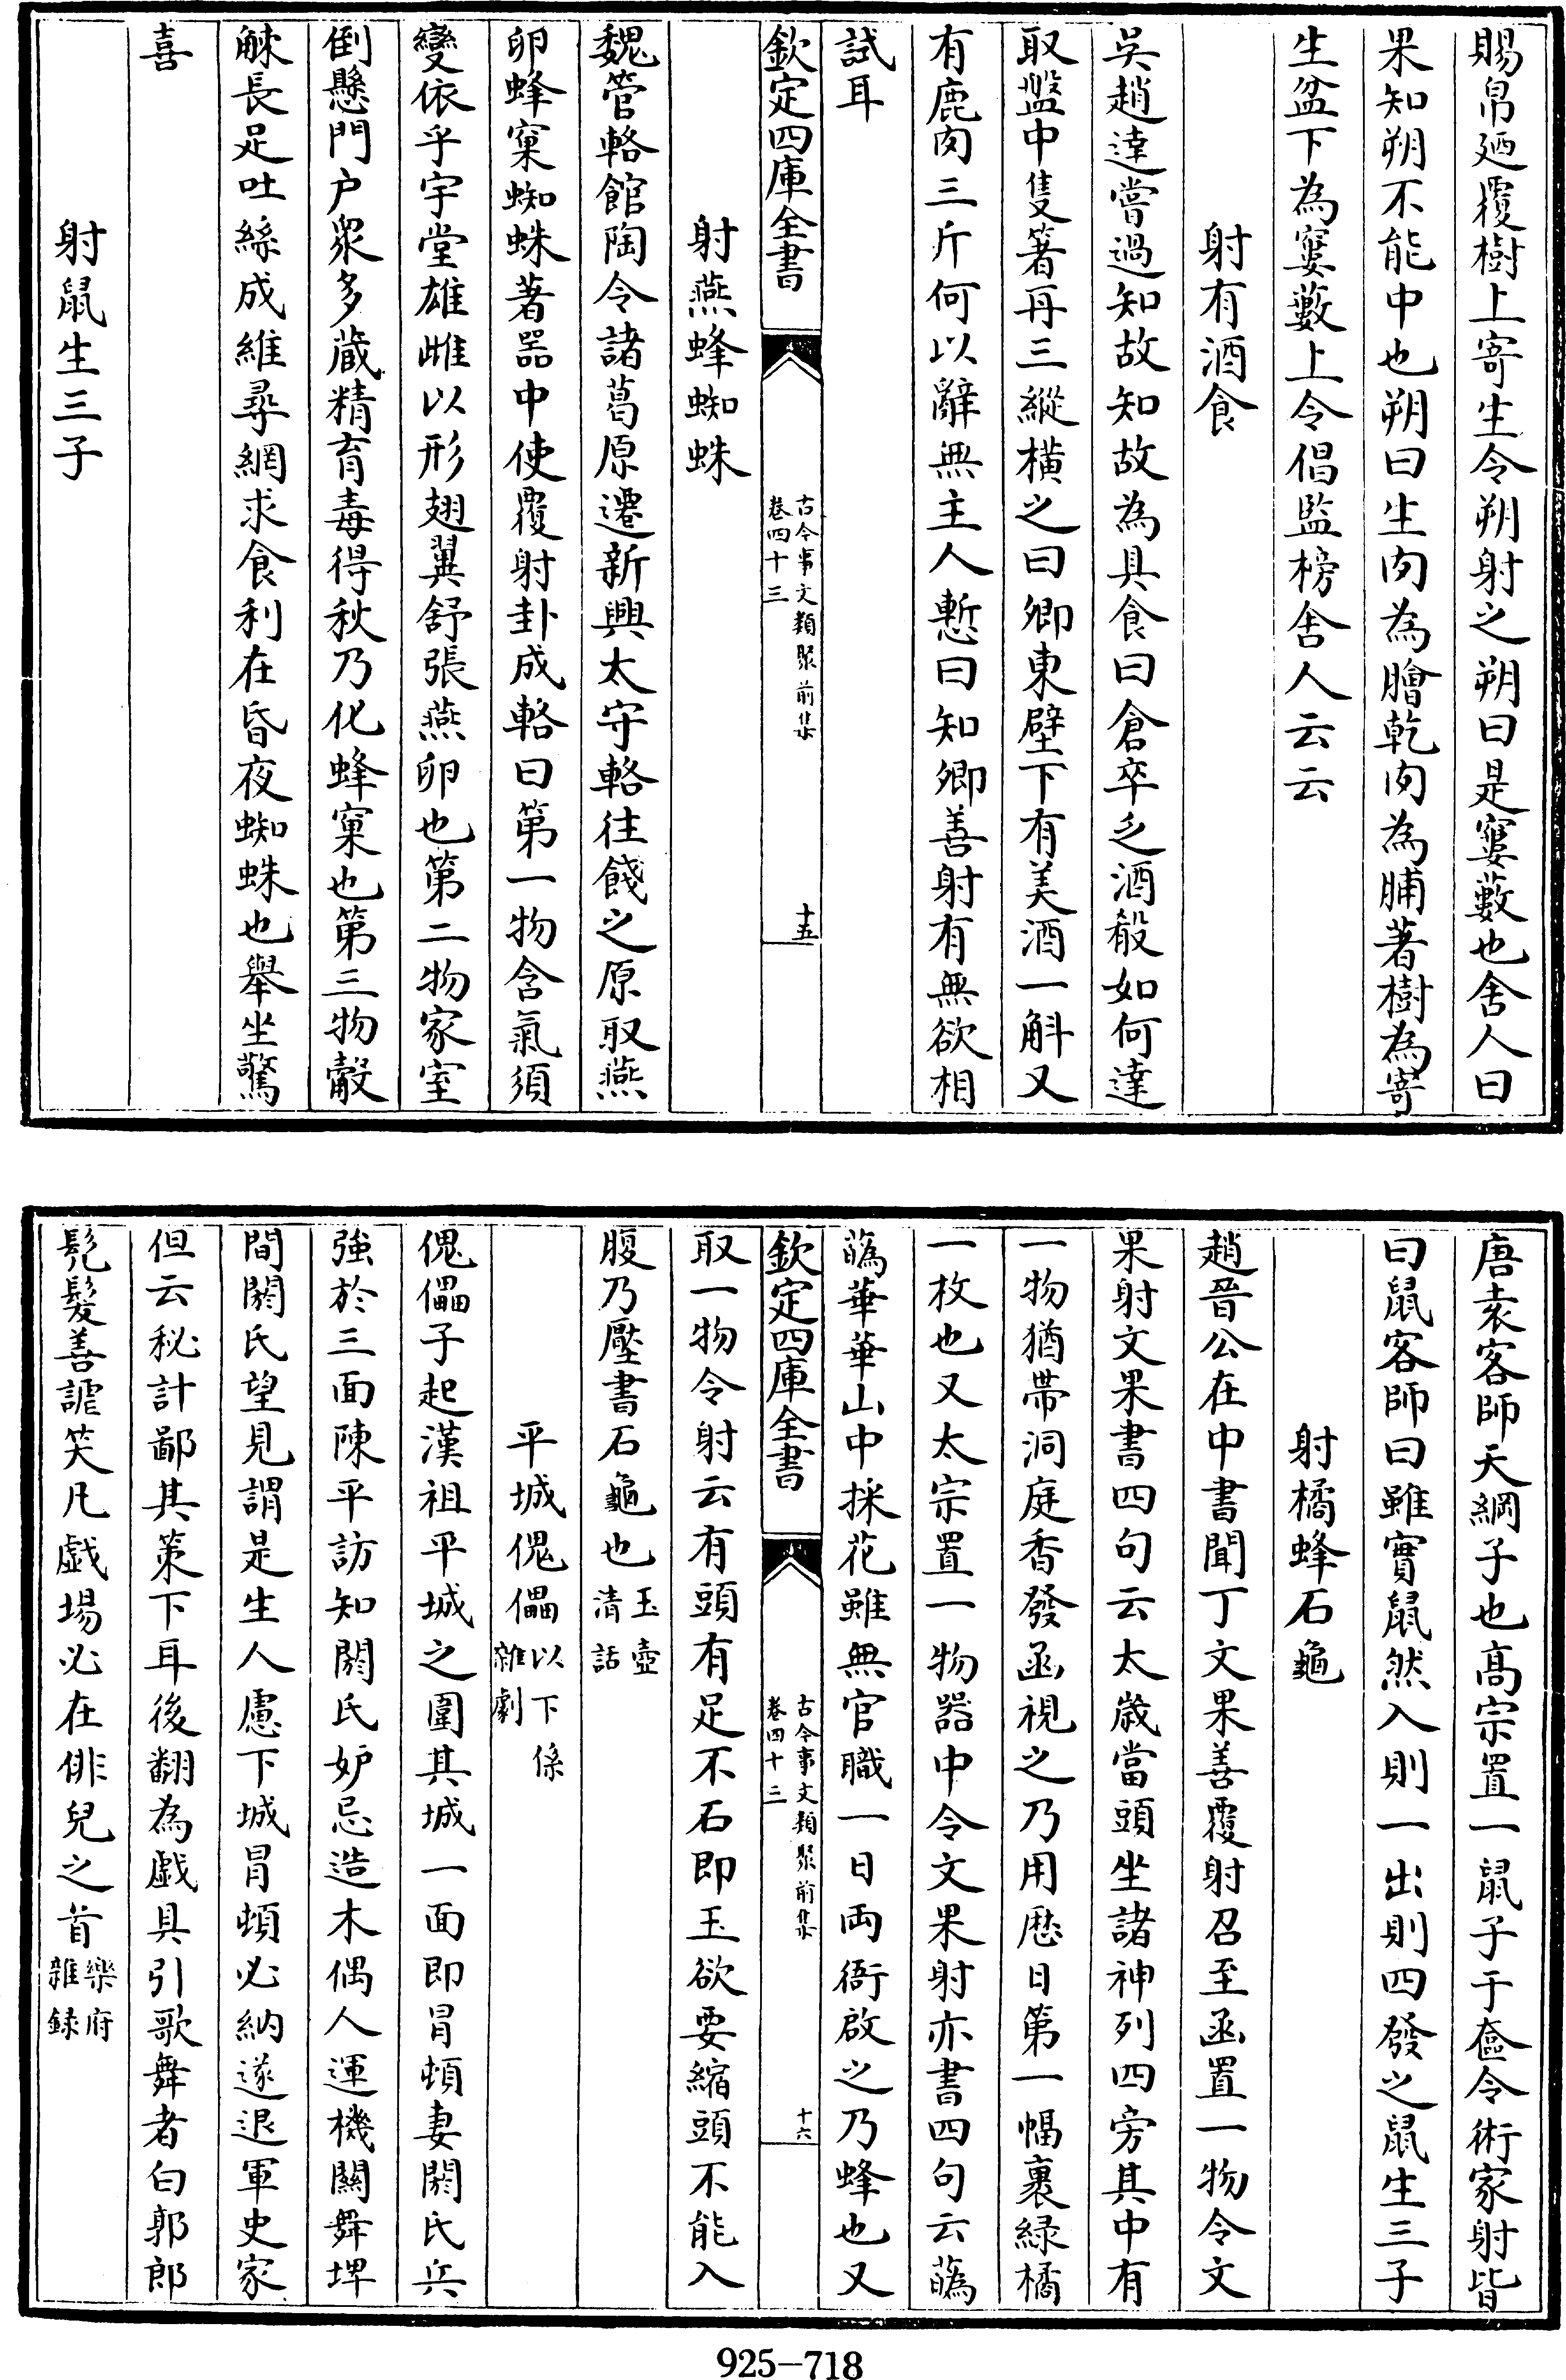 賜帛廼覆樹上寄生令朔射之朔曰是窶藪也舍人曰
果知朔不能中也朔曰生肉為膾乾肉為脯著樹為寄
生盆下為窶藪上令倡監榜舍人云云
射有酒食
吳趙達嘗過知故知故為具食曰倉卒乏酒殽如何達
取盤中隻箸再三縱橫之曰卿東壁下有美酒一斛又
有鹿肉三斤何以辭無主人慙曰知卿善射有無欲相
試耳
欽定四庫全書
古今事文類聚前集
卷四十三
十五
射燕蜂蜘蛛
魏管輅館陶令諸葛原遷新興太守輅往餞之原取燕
卵蜂窠蜘蛛著器中使覆射卦成輅曰第一物含氣須
變依乎宇堂雄雌以形翅翼舒張燕卵也第二物家室
倒懸門户衆多藏精育毒得秋乃化蜂窠也第三物觳
觫長足吐絲成維尋網求食利在昏夜蜘蛛也舉坐驚
喜
射鼠生三子
唐袁客師天綱子也髙宗置一鼠子于奩令術家射皆
曰鼠客師曰雖實鼠然入則一出則四發之鼠生三子
射橘蜂石龜
趙晉公在中書聞丁文果善覆射召至函置一物令文
果射文果書四句云太歲當頭坐諸神列四旁其中有
一物猶帶洞庭香發函視之乃用厯日第一幅裹緑橘
一枚也又太宗置一物器中令文果射亦書四句云蘤
蘤華華山中採花雖無官職一日両衙啟之乃蜂也又
欽定四庫全書
古今事文類聚前集
卷四十三
十六
取一物令射云有頭有足不石即玉欲要縮頭不能入
腹乃壓書石龜也玉壺清話
平城傀儡以下係雜劇
傀儡子起漢祖平城之圍其城一面即冒頓妻閼氏兵
強於三面陳平訪知閼氏妒忌造木偶人運機關舞埤
間閼氏望見謂是生人慮下城冒頓必納遂退軍史家
但云秘計鄙其策下耳後翻為戯具引歌舞者曰郭郎
髠髮善謔笑凡戯場必在俳兒之首樂府雜録
925-718